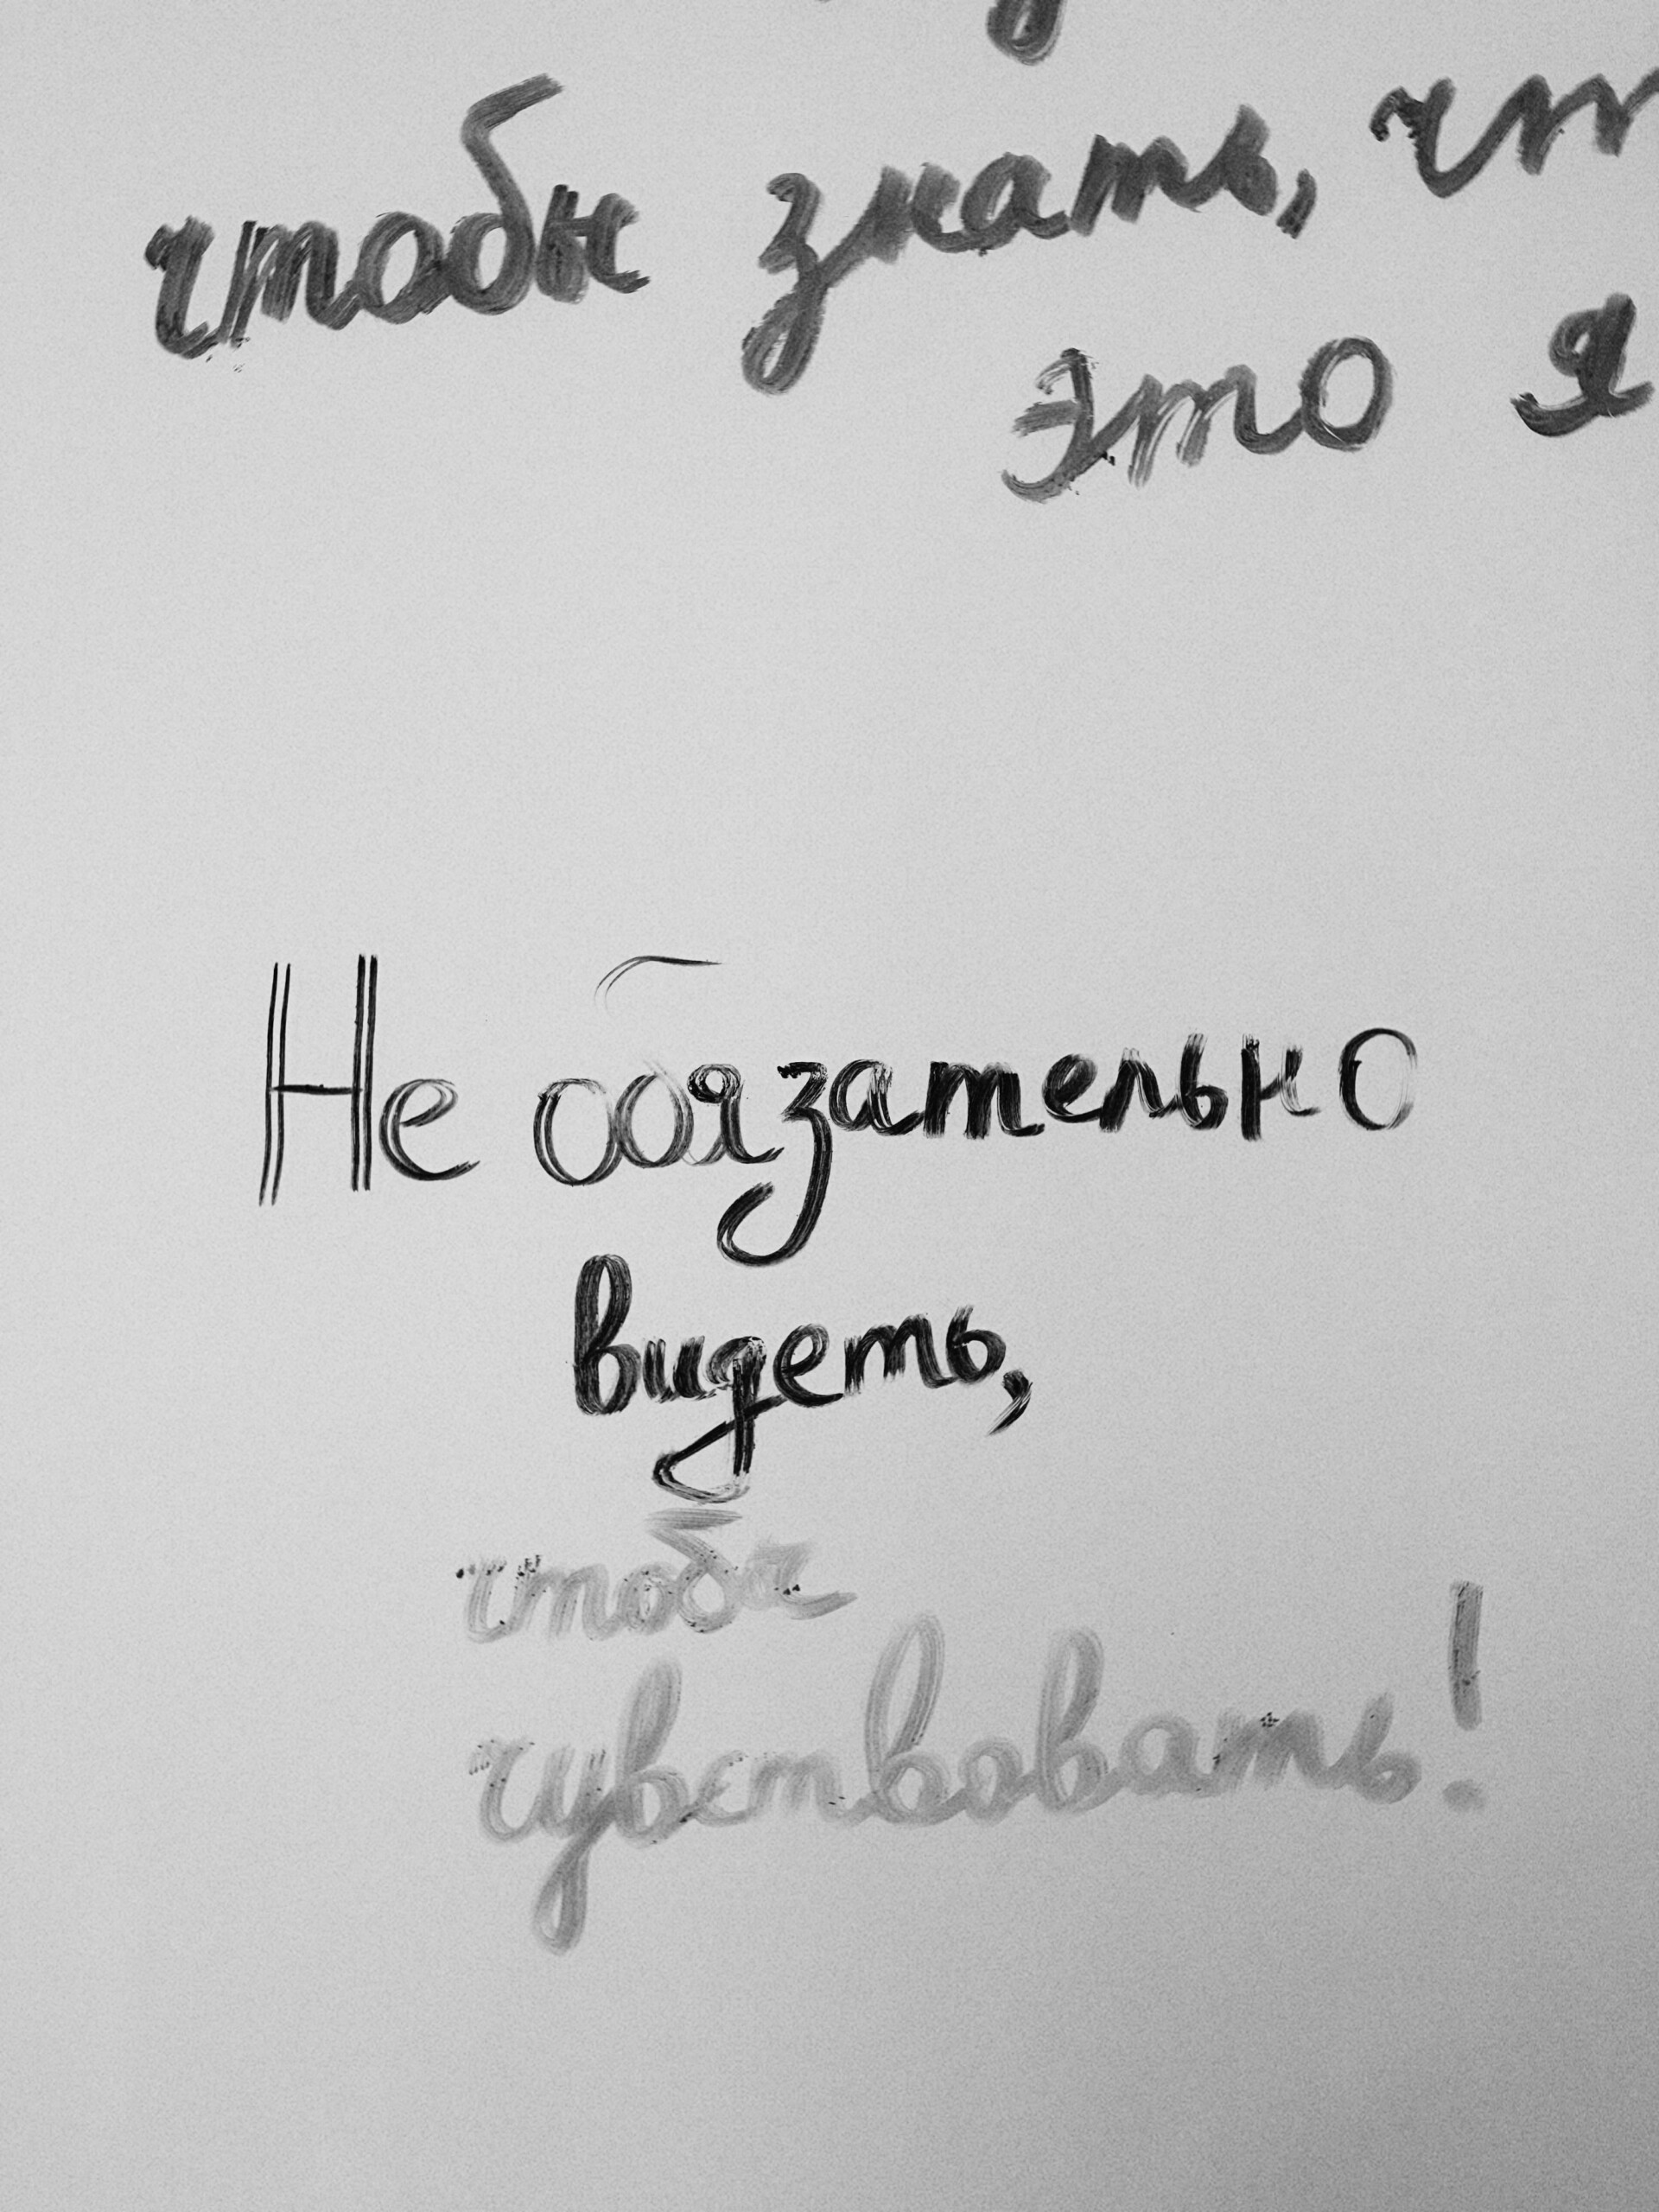 чтобы знать, что
это я
Не обязательно
видеть,
чтобы
чувствовать!